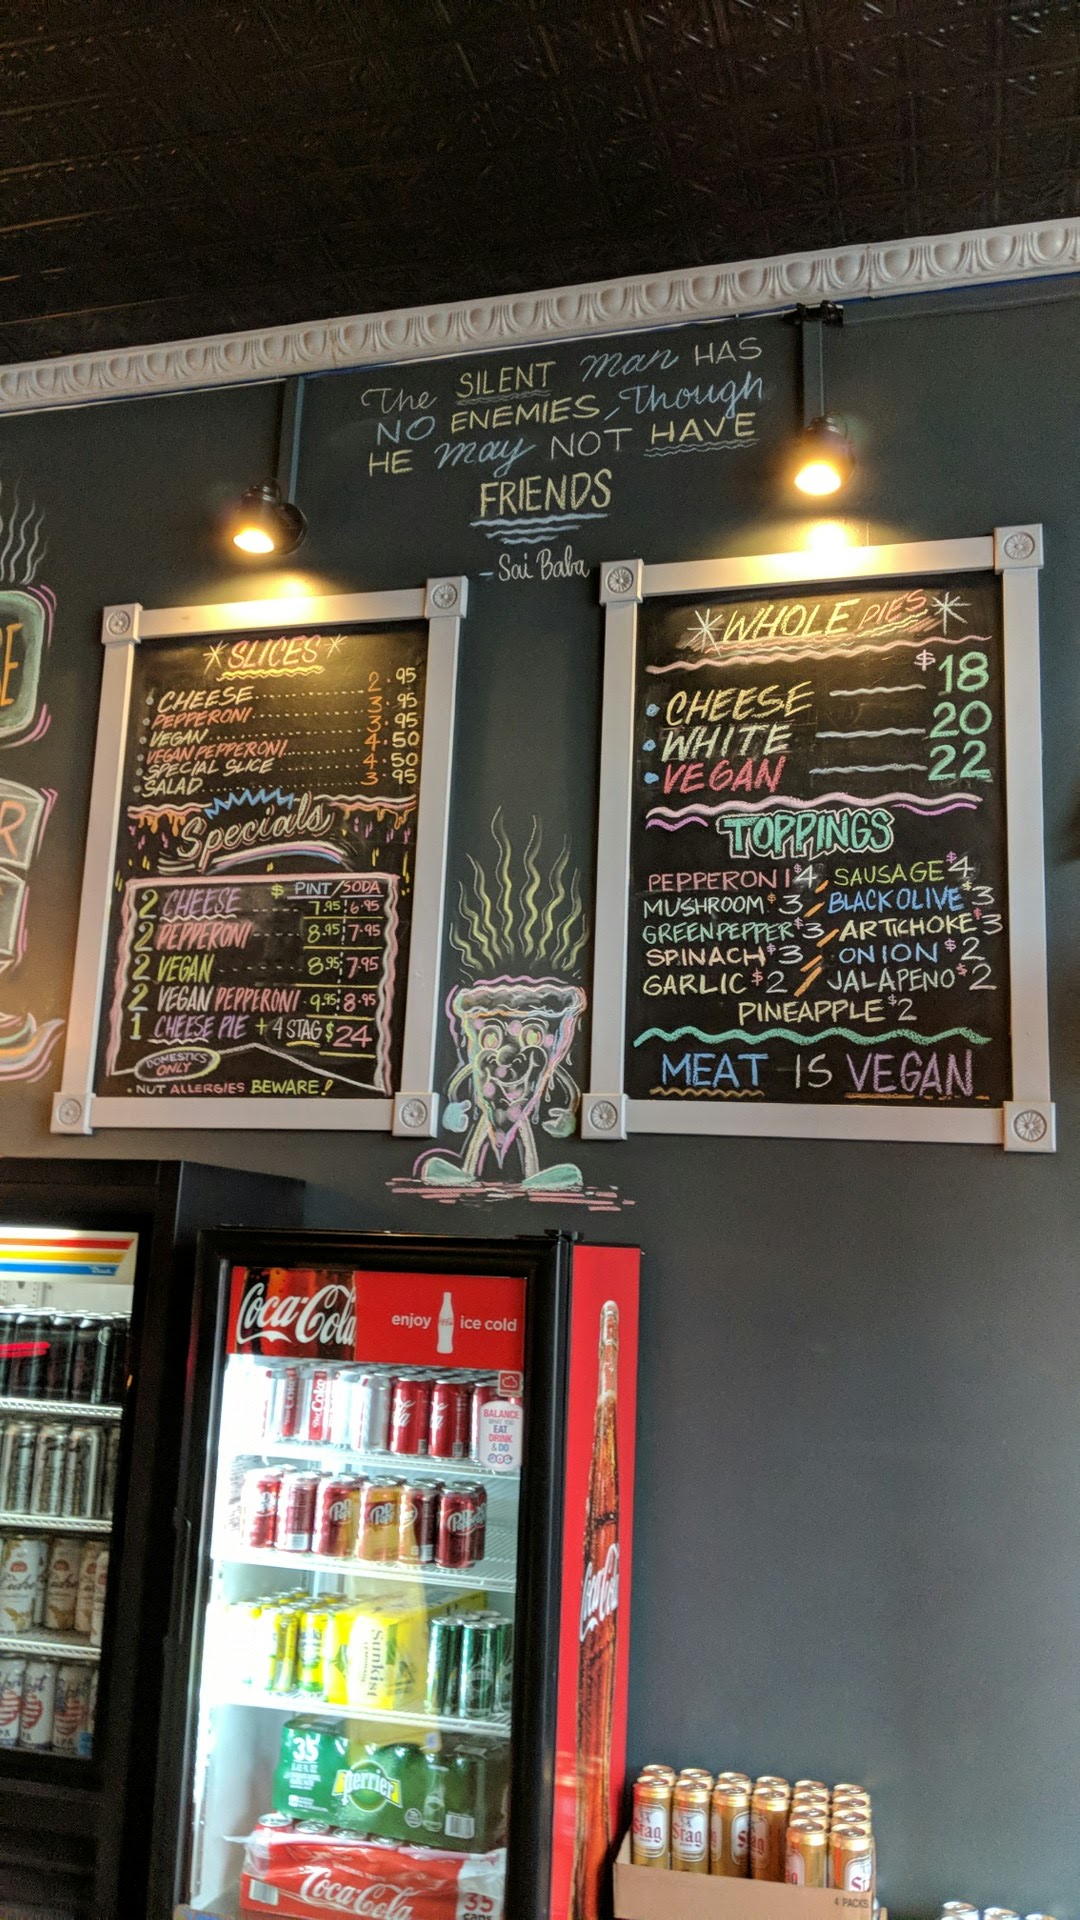 The SILENT Man HAS
NO ENEMIES, Though
HE May NOT HAVE
FRIENDS
- Sai Baba
SLICES
CHEESE 2.95
PEPPERONI 3.95
VEGAN 3.95
VEGAN PEPPERONI 4.50
SPECIAL SLICE 4.50
SALAD 3.95
Specials
$ PINT/SODA
2 CHEESE 7.95 6.95
2 PEPPERONI 8.95 7.95
2 VEGAN 8.95 7.95
2 VEGAN PEPPERONI 9.95 8.95
1 CHEESE PIE + 4 STAG $24
DOMESTICS
ONLY
NUT ALLERGIES BEWARE!
WHOLE PIES
CHEESE $18
WHITE 20
VEGAN 22
TOPPINGS
PEPPERONI $4 SAUSAGE $4
MUSHROOM $3 BLACK OLIVE $3
GREEN PEPPER $3 ARTICHOKE $3
SPINACH $3 ONION $2
GARLIC $2 JALAPENO $2
PINEAPPLE $2
MEAT IS VEGAN
Coca-Cola enjoy ice cold
BALANCE
EAT
DRINK
& DO
Dr Pepper
Sunkist
35
perrier
Coca-Cola
35
cans
Coca-Cola
Stag Stag Stag
4 PACKS